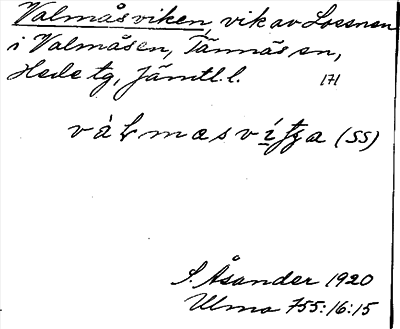 Valmåsviken, vik av Lossnen
i Valmåsen, Tännäs sn,
Hede tg, Jämtl. l. 171
våLmasvítja (SS)
S. Åsander 1920
Ulma 755:16:15